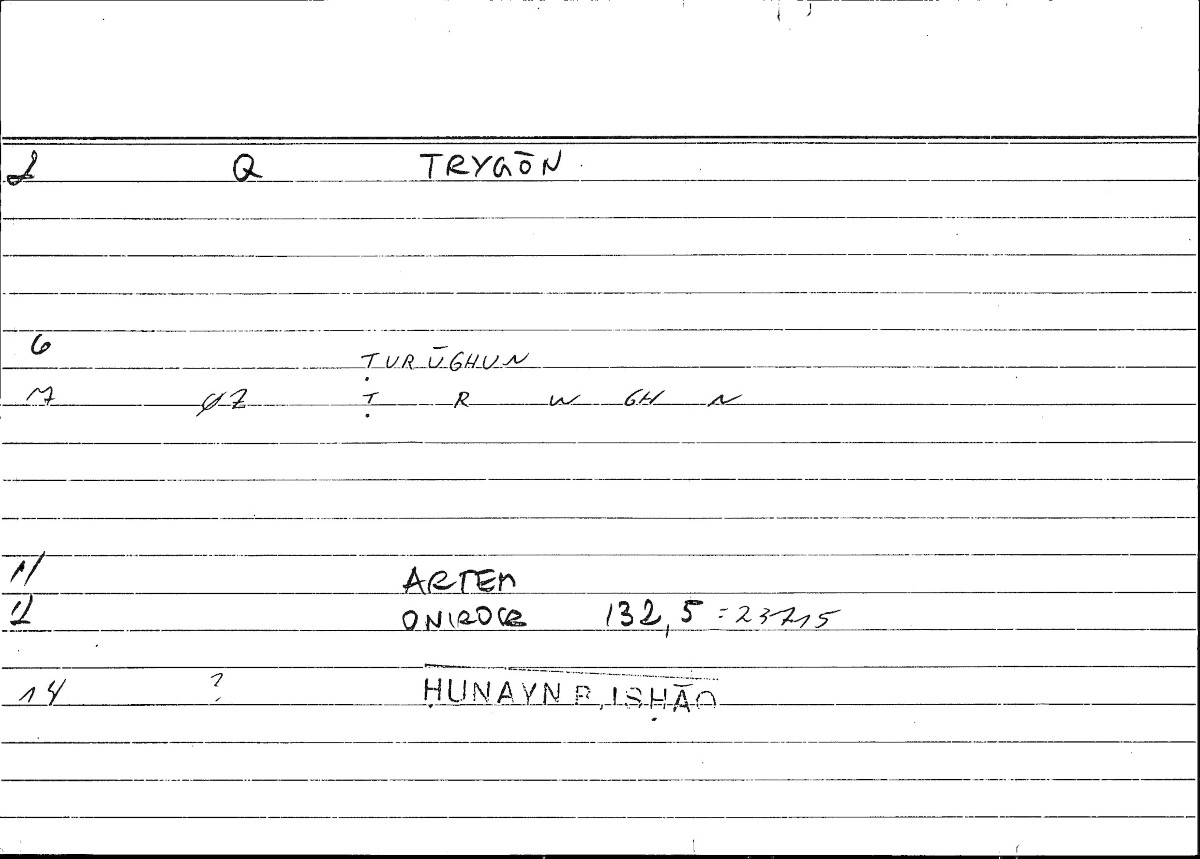 2 Q TRYGŌN
6 ṬURŪGHUN
7 ØZ Ṭ R W GH N
11 ARTEM
12 ONIROCR 132,5 = 23715
14 ? ḤUNAYN B. ISḤĀQ